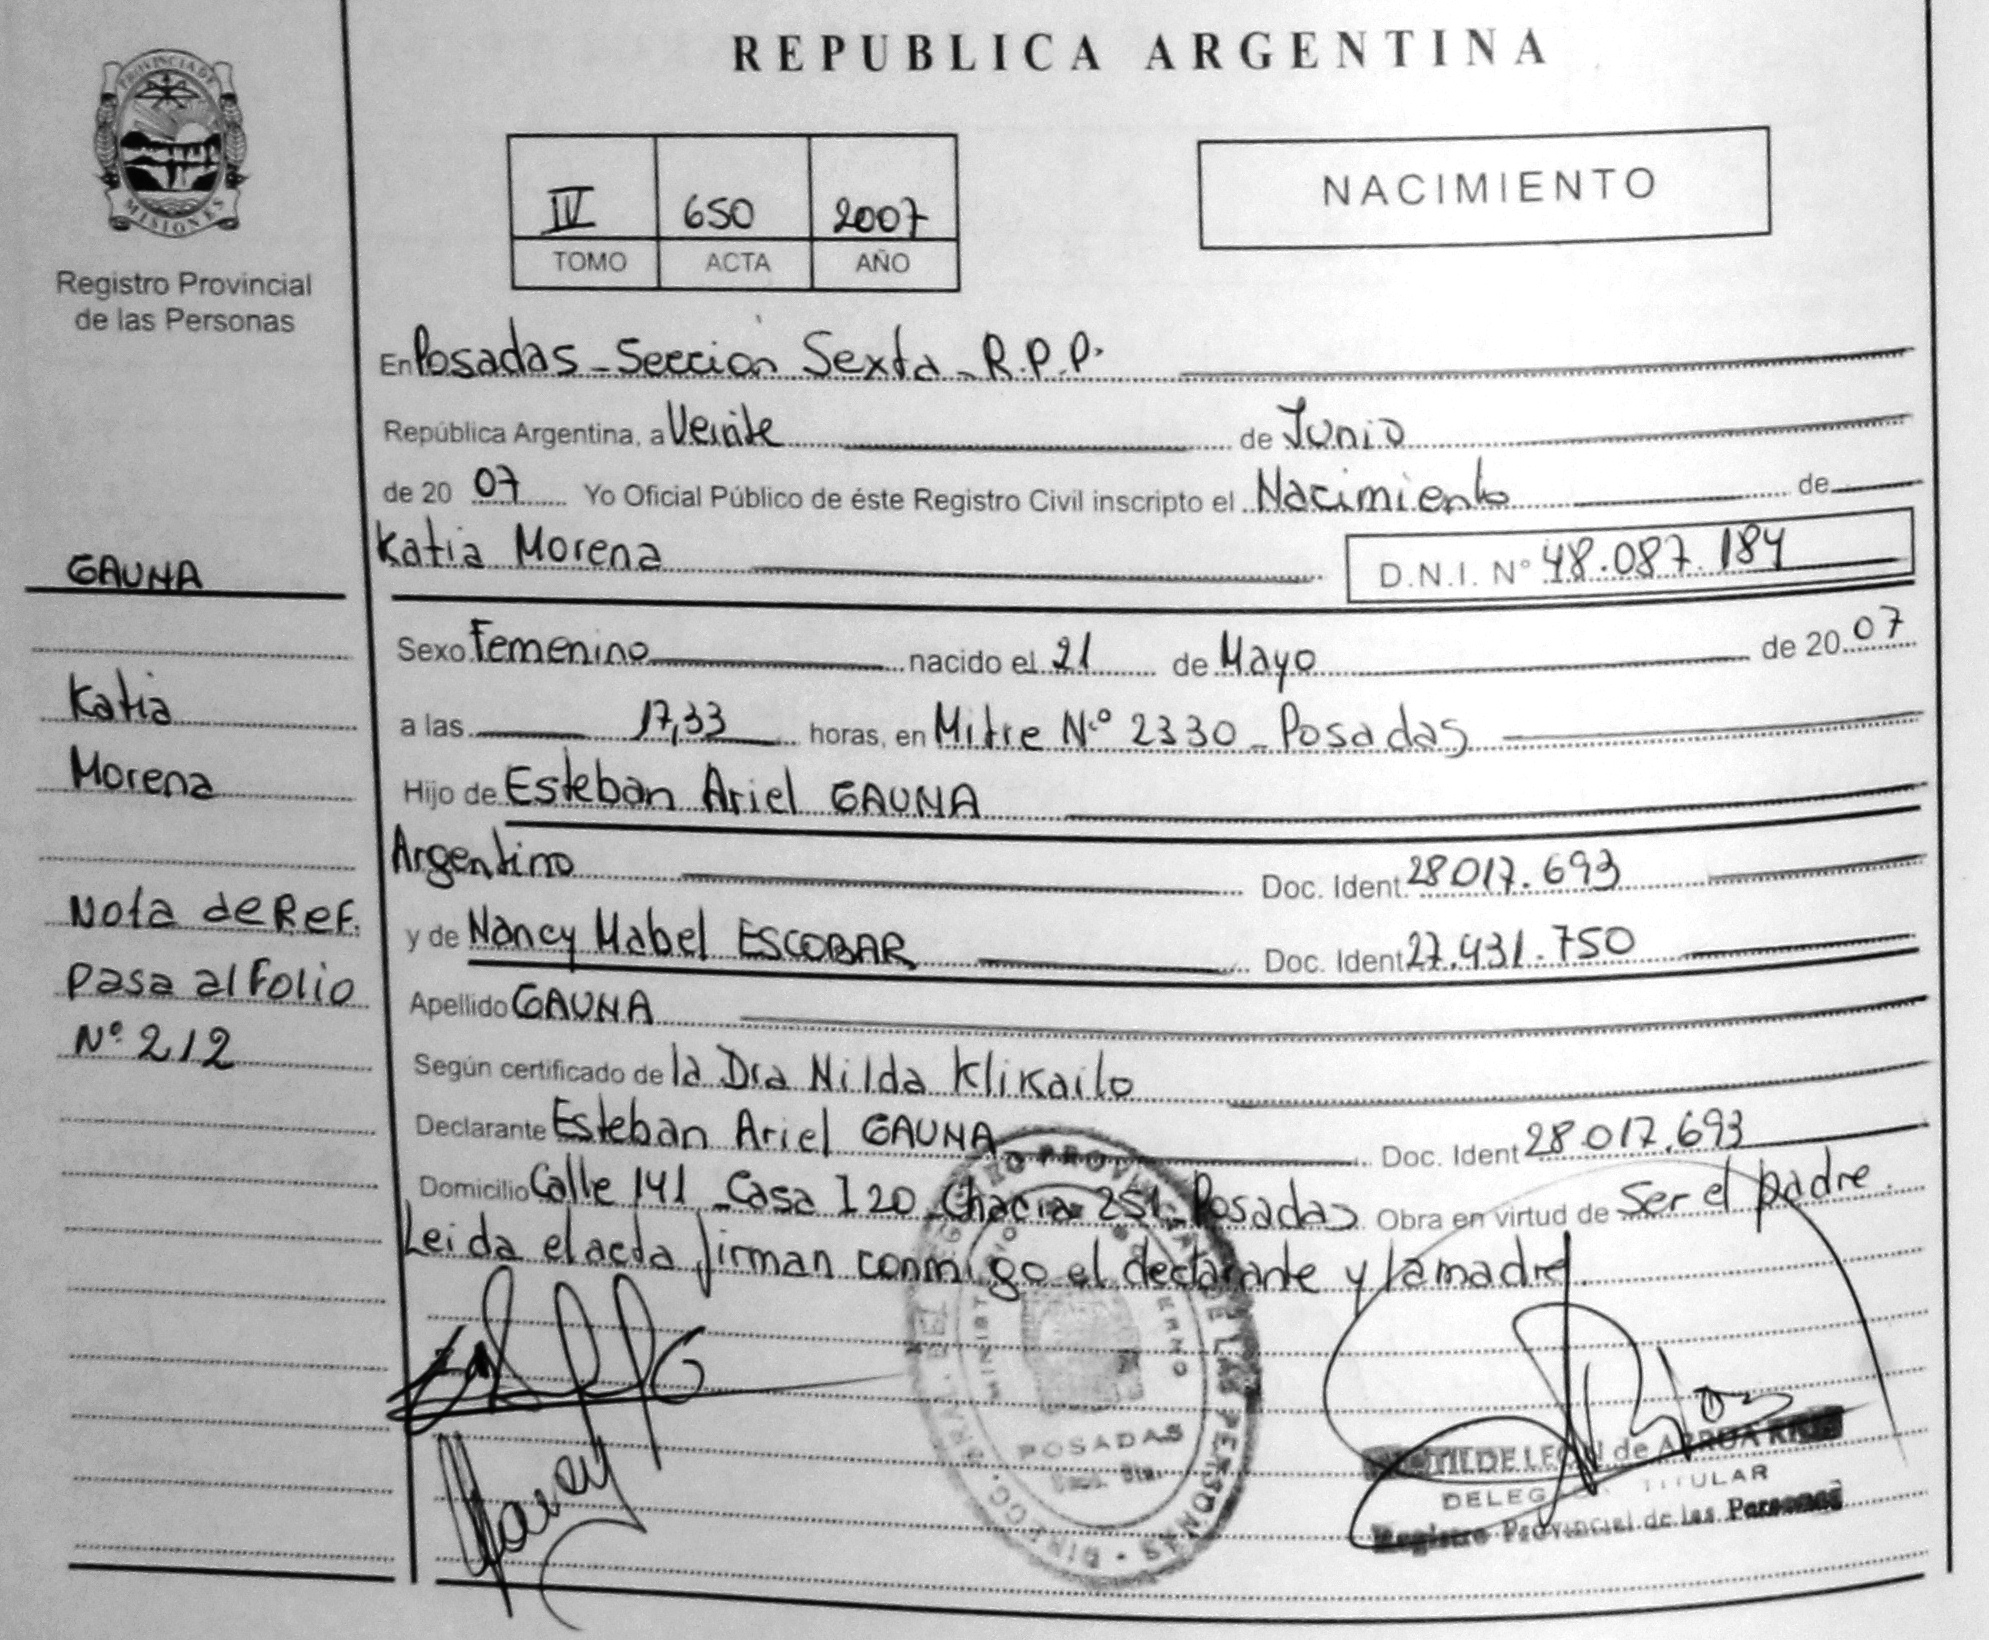 REPUBLICA ARGENTINA
PROVINCIA DE
MISIONES
Registro Provincial
de las Personas
IV 650 2007
TOMO ACTA AÑO
NACIMIENTO
En Posadas - Sección Sexta - R.P.P.
República Argentina, a Veinte de Junio
de 20 07 Yo Oficial Público de éste Registro Civil inscripto el Nacimiento de
Katia Morena D.N.I. N° 48.087.184
Sexo Femenino nacido el 21 de Mayo de 20 07
a las 17,33 horas, en Mitre N° 2330 - Posadas
Hijo de Esteban Ariel GAUNA
Argentino Doc. Ident. 28017.693
y de Nancy Mabel ESCOBAR Doc. Ident 27.431.750
Apellido GAUNA
Según certificado de la Dra Nilda Klikailo
Declarante Esteban Ariel GAUNA Doc. Ident 28.017.693
Domicilio Calle 141 - Casa 120 - Chacra 251 - Posadas Obra en virtud de Ser el padre.
Leida el acta firman conmigo el declarante y la madre.
GAUNA
Katia
Morena
Nota de Ref.
Pasa al Folio
N° 212
Nancy
POSADAS
LEON de ARRUA
TITULAR
Registro Provincial de las Personas